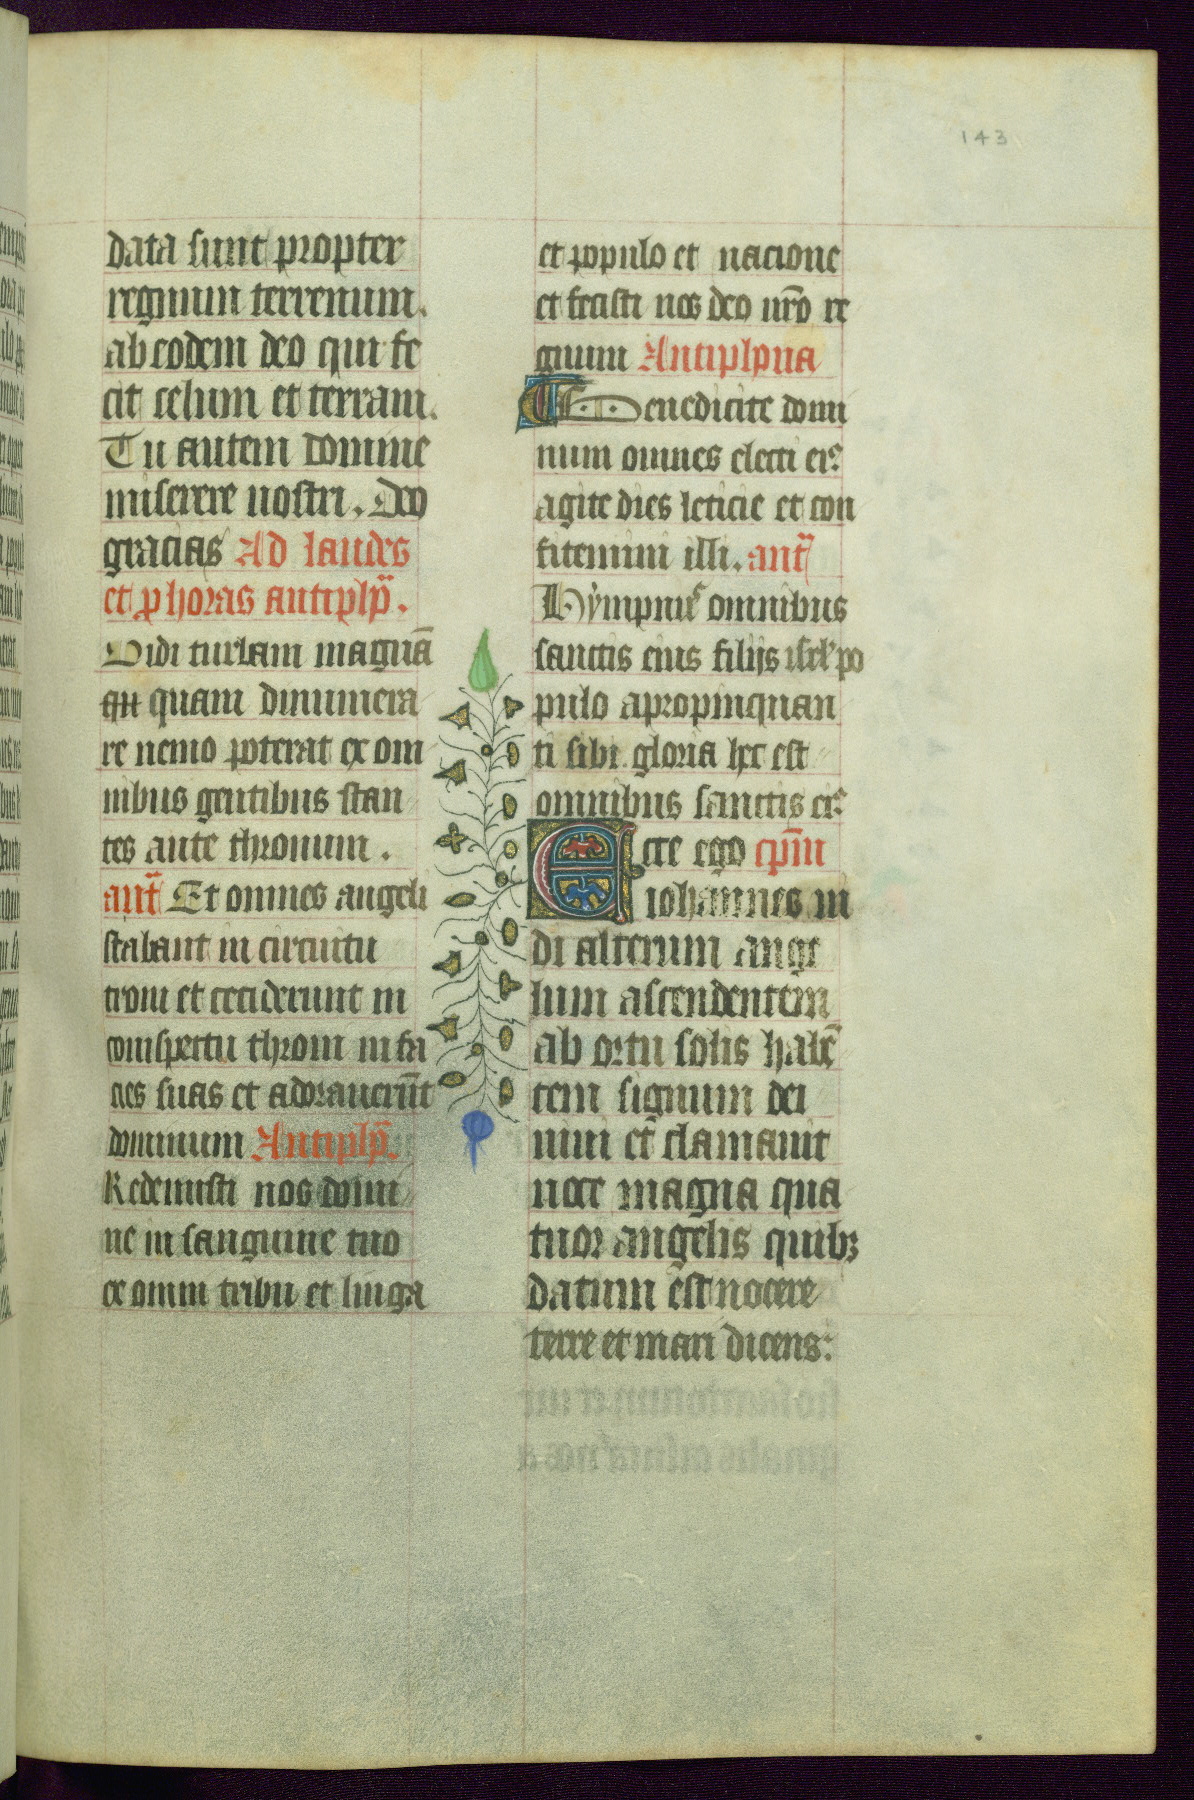 143
data sunt propter
regnum terrenum.
ab eodem deo qui fe
cit celum et terram.
Tu autem domine
miserere nostri. Deo
gracias Ad laudes
et p horas antiph̄.
Vidi turbam magnā
quam dinumera
re nemo poterat ex om
nibus gentibus stan
tes ante thronum.
ant̄ Et omnes angeli
stabant in circuitu
troni et ceciderunt in
conspectu throni in fa
cies suas et adorauerūt
dominum Antiph̄.
Redemisti nos domi
ne in sanguine tuo
ex omni tribu et linga
et populo et nacione
et fecisti nos deo nr̄o re
gnum Antiphna
Benedicite domi
num omnes electi eiꝰ
agite dies leticie et con
fitemini illi. ant̄
Hẏmpnuꝰ omnibus
sanctis eius filijs isrl' po
pulo apropinquan
ti sibi gloria hec est
omnibus sanctis eiꝰ
Ecce ego cp̄m
iohannes ui
di alterum ange
lum ascendentem
ab ortu solis habē
tem signum dei
uiui et clamauit
uoce magna qua
tuor angelis quibꝫ
datum est nocere
terre et mari dicens: